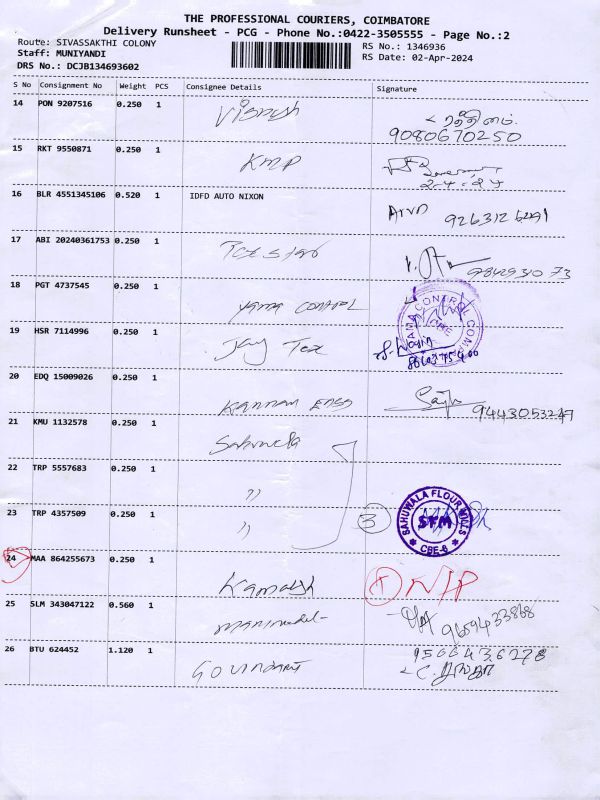 THE PROFESSIONAL COURIERS, COIMBATORE
Delivery Runsheet - PCG - Phone No.:0422-3505555 - Page No.:2
Route: SIVASSAKTHI COLONY RS No.: 1346936
Staff: MUNIYANDI RS Date: 02-Apr-2024
DRS No.: DCJB134693602
S No Consignment No Weight PCS Consignee Details Signature
14 PON 9207516 0.250 1
9080670250
15 RKT 9550871 0.250 1 KMP
2-4-24
16 BLR 4551345106 0.520 1 IDFD AUTO NIXON
17 ABI 20240361753 0.250 1
18 PGT 4737545 0.250 1 YAMA CONTROL
YAMA CONTROL COMPA
CBE
19 HSR 7114996 0.250 1 Jay Tex
20 EDQ 15009026 0.250 1 Kannan Engg
21 KMU 1132578 0.250 1
22 TRP 5557683 0.250 1 "
23 TRP 4357509 0.250 1 " 3
SAHUWALA FLOUR MILLS
SFM
CBE-6
24 MAA 864255673 0.250 1 Kamalesh 1 N/P
25 SLM 343047122 0.560 1
9659433868
26 BTU 624452 1.120 1
9566436278